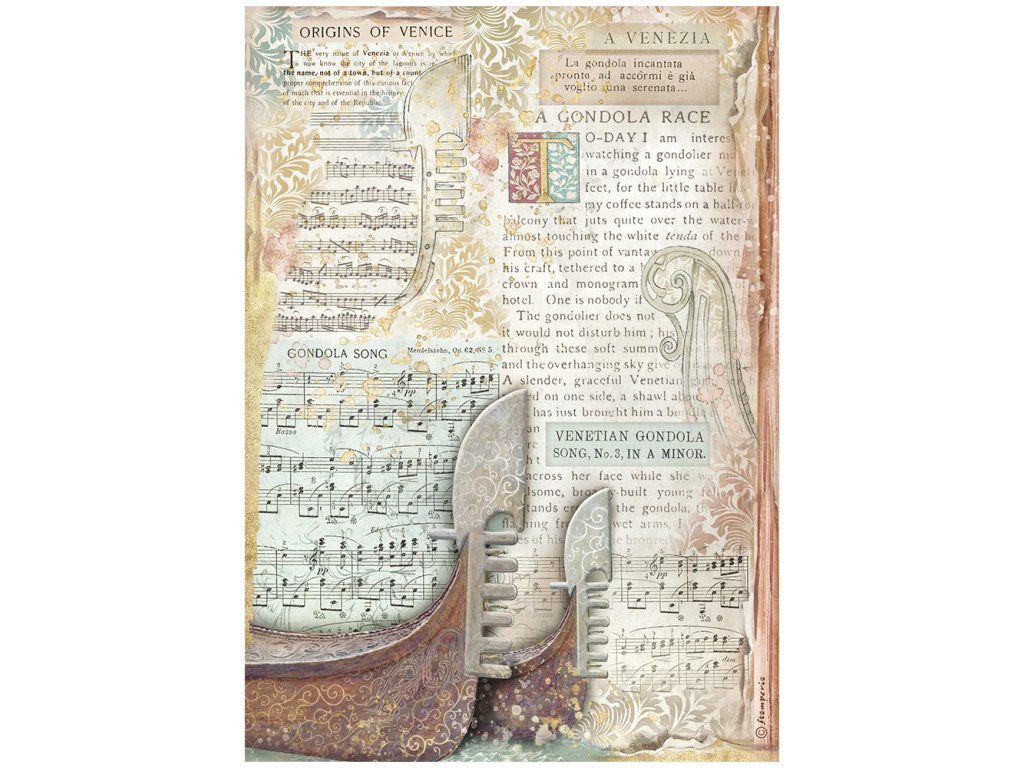 ORIGINS OF VENICE
THE very name of Venezia or Venice by which
now know the city of the lagoons is in
the name, not of a town, but of a count
proper comprehension of this curious fact
of much that is essential in the history
of the city and of the Republic.
GONDOLA SONG
Mendelssohn, Op. 62, No 5.
Basso
pp
8
pp
A VENEZIA
La gondola incantata
pronta ad accórmi è già
voglio una serenata...
A GONDOLA RACE
TO-DAY I am interes
watching a gondolier
in a gondola lying at Venet
feet, for the little table
my coffee stands on a half-ro
balcony that juts quite over the water-w
almost touching the white tenda of the
From this point of vanta down
his craft, tethered to a
crown and monogram of
hotel. One is nobody if
The gondolier does not
it would not disturb him ; his
through these soft summ
and the overhanging sky give
A slender, graceful Venetian girl
ed on one side, a shawl abou
has just brought him a bu
an
re
VENETIAN GONDOLA
SONG, No. 3, IN A MINOR.
ht
across her face while she
dsome, broadly-built young
stands the gondola, th
fla ing fro wet arms,
es of his the bronzed
pp
dim
© stamperia